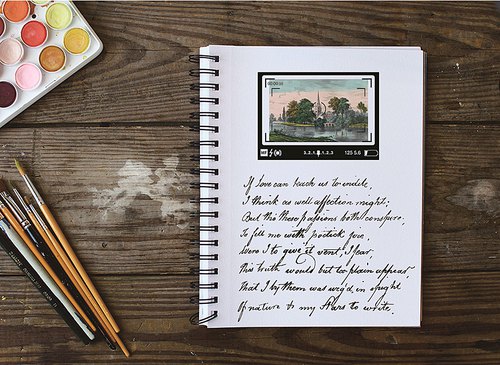 00:00:10
3..2..1..1..2..3
125 5.6
If Love can teach us to indite,
I think as well affection might;
But this these passions both conspire,
To fill me with poetick fire,
Were I to give it vent, I fear,
This truth would but too plain appear,
That I by them was urg'd in spight
Of nature to my Stars to write.